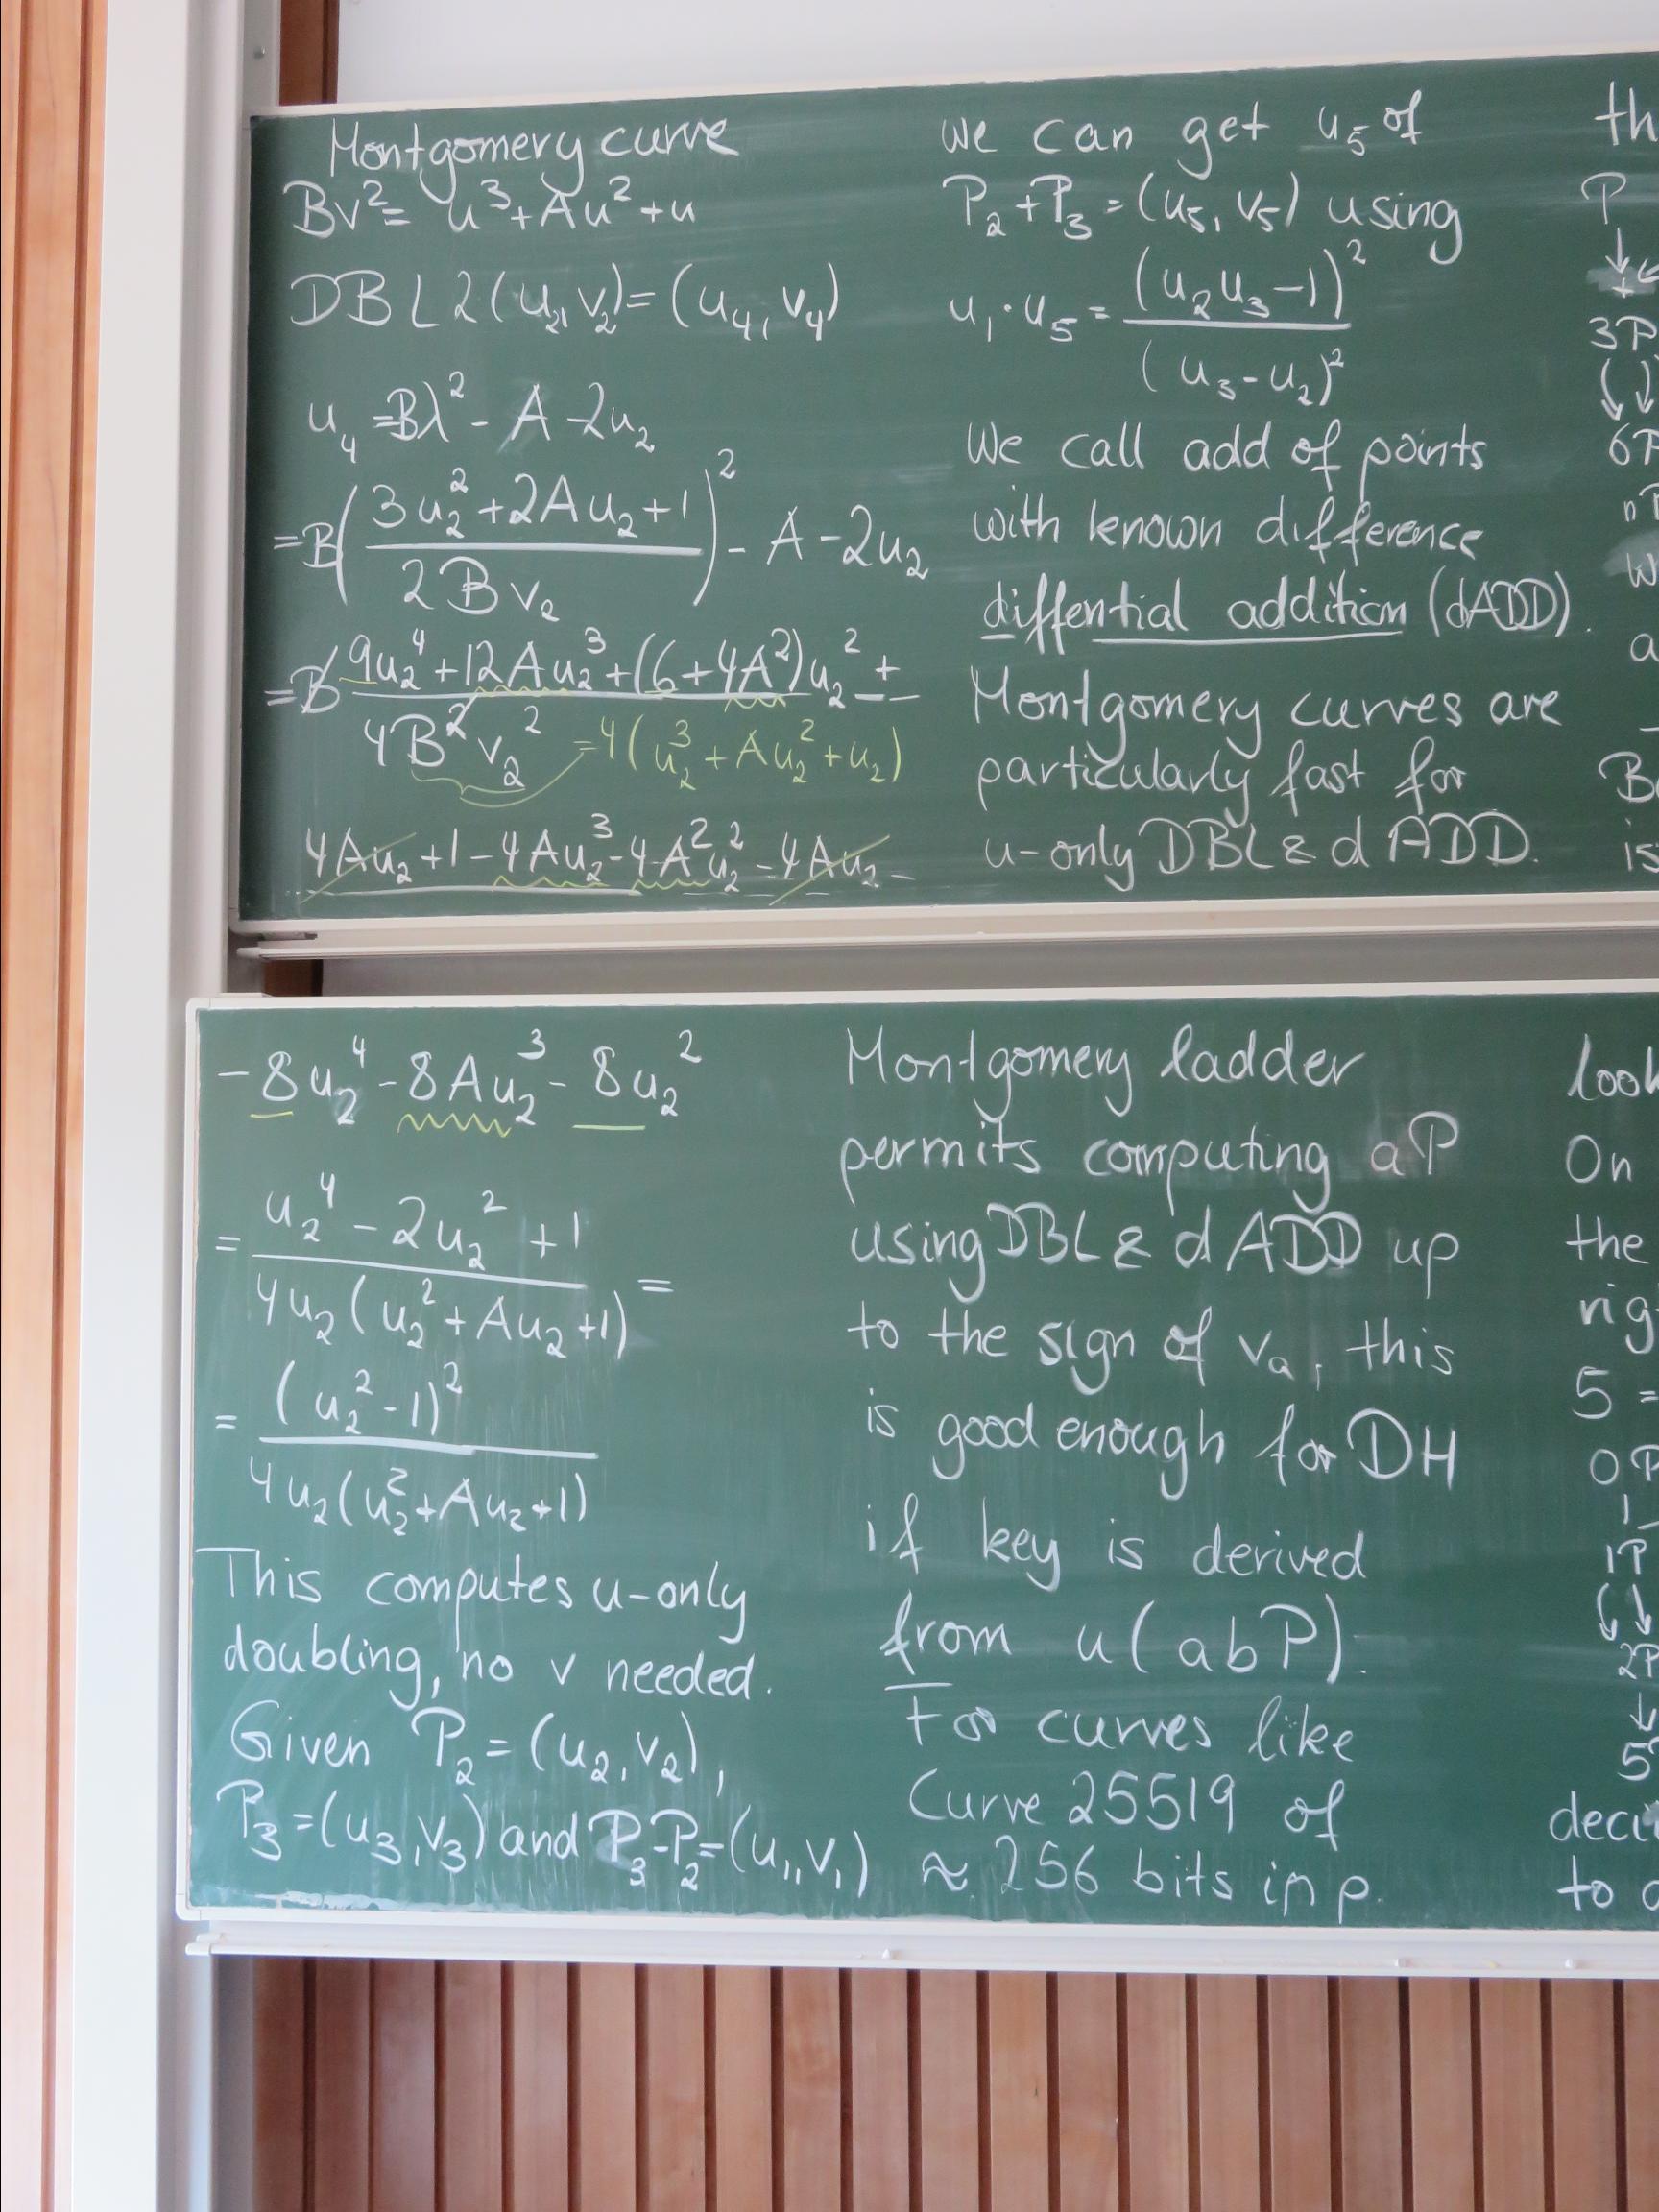 Montgomery curve
Bv² = u³ + Au² + u
DBL 2(u₂, v₂) = (u₄, v₄)
u₄ = Bλ² - A - 2u₂
= B((3u₂² + 2Au₂ + 1)/(2Bv₂))² - A - 2u₂
= B (9u₂⁴ + 12Au₂³ + (6 + 4A²)u₂² +
4B²v₂² = 4(u₂³ + Au₂² + u₂)
4Au₂ + 1 - 4Au₂³ - 4A²u₂² - 4Au₂ -
we can get u₅ of
P₂ + P₃ = (u₅, v₅) using
u₁ · u₅ = (u₂u₃ - 1)² / (u₃ - u₂)²
We call add of points
with known difference
diffential addition (dADD).
Montgomery curves are
particularly fast for
u-only DBL & dADD.
th
P
3P
6P
nP
w
a
B
is
-8u₂⁴ - 8Au₂³ - 8u₂²
= (u₂⁴ - 2u₂² + 1) / (4u₂(u₂² + Au₂ + 1)) =
= (u₂² - 1)² / (4u₂(u₂² + Au₂ + 1))
This computes u-only
doubling, no v needed.
Given P₂ = (u₂, v₂),
P₃ = (u₃, v₃) and P₃ - P₂ = (u₁, v₁)
Montgomery ladder
permits computing aP
using DBL & dADD up
to the sign of vₐ, this
is good enough for DH
if key is derived
from u(abP).
For curves like
Curve 25519 of
≈ 256 bits in p.
look
On
the
rig
5 =
0P
1
1P
2P
5
deci
to